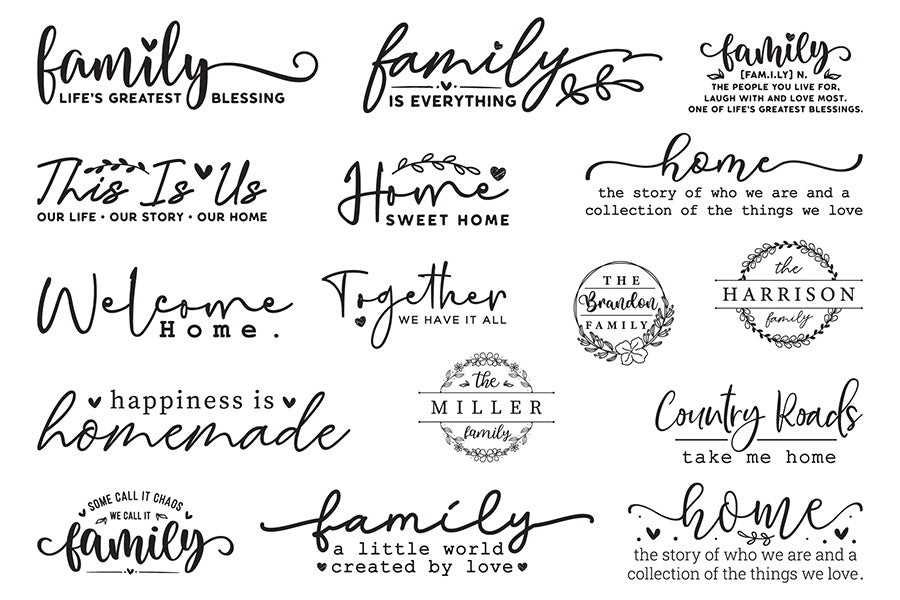 family
LIFE'S GREATEST BLESSING
family
IS EVERYTHING
family
[FAM.I.LY] N.
THE PEOPLE YOU LIVE FOR,
LAUGH WITH AND LOVE MOST.
ONE OF LIFE'S GREATEST BLESSINGS.
This Is Us
OUR LIFE • OUR STORY • OUR HOME
Home
SWEET HOME
home
the story of who we are and a
collection of the things we love
Welcome
Home.
Together
WE HAVE IT ALL
THE
Brandon
FAMILY
the
HARRISON
family
happiness is
homemade
the
MILLER
family
Country Roads
take me home
SOME CALL IT CHAOS
WE CALL IT
family
family
a little world
created by love
home
the story of who we are and a
collection of the things we love.